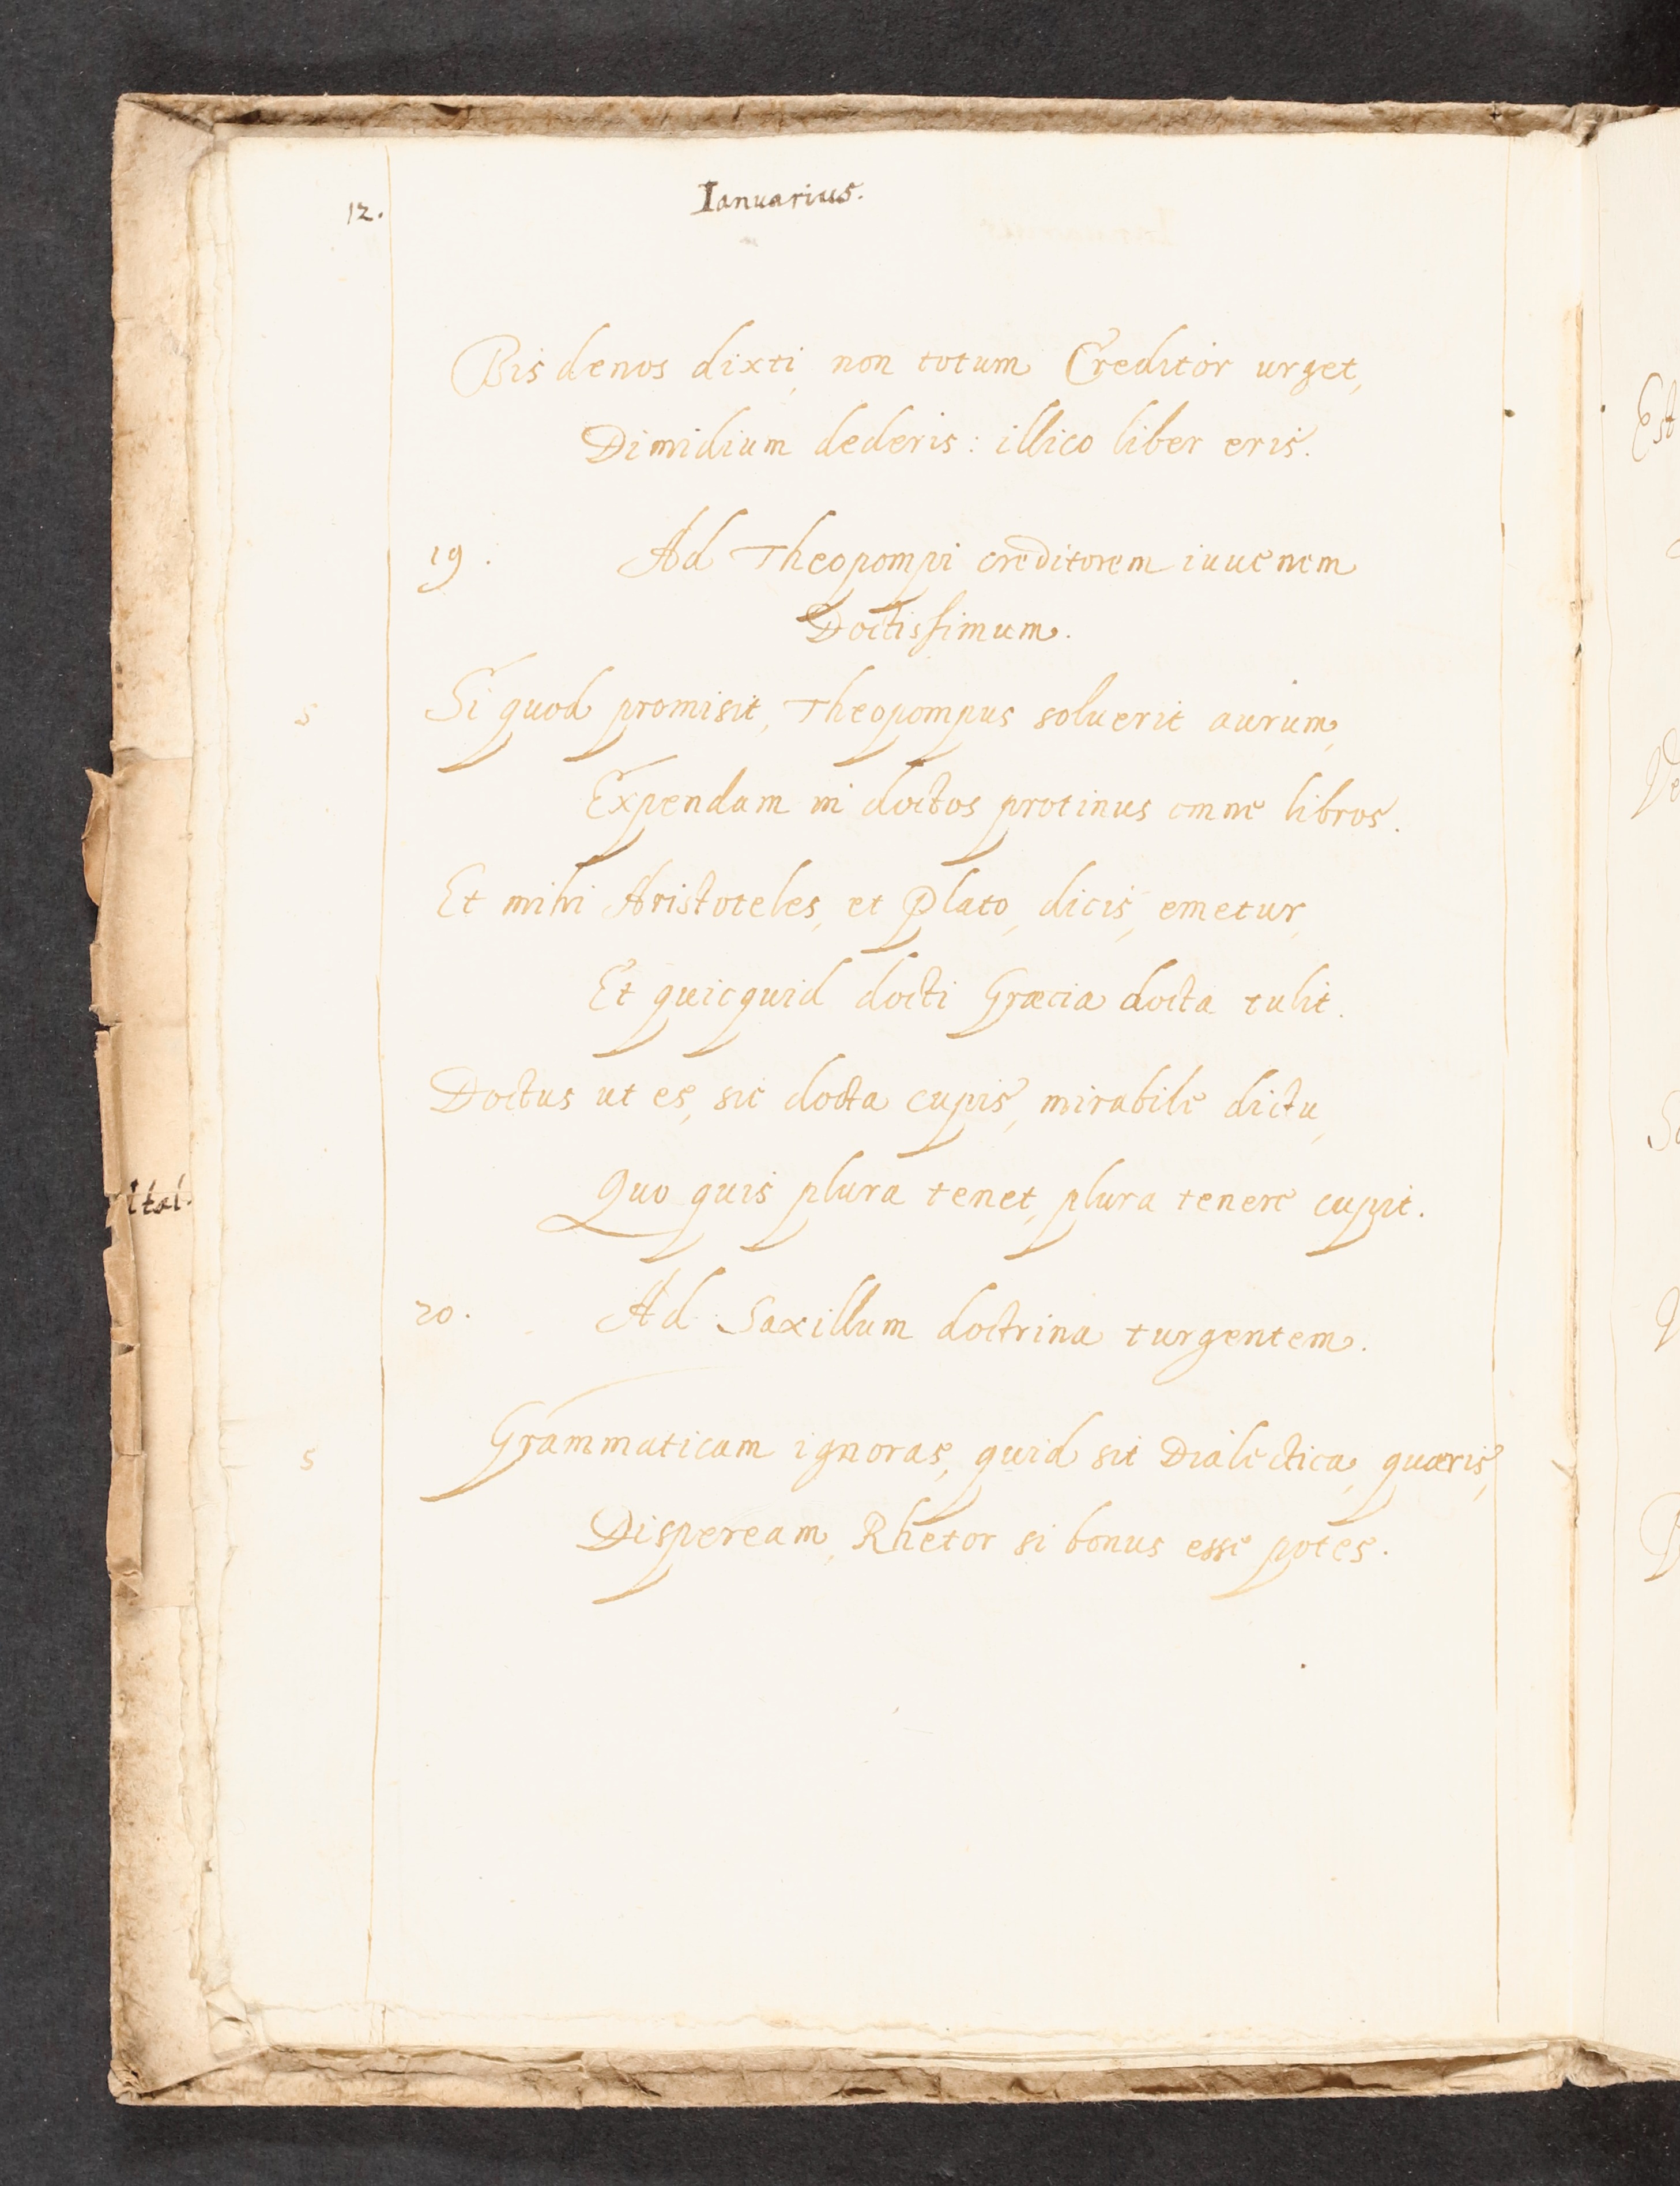 12.
Ianuarius.
Bis denos dixti, non totum Creditor urget,
Dimidium dederis: illico liber eris.
19. Ad Theopompi creditorem iuuenem
Doctissimum.
5 Si quod promisit, Theopompus soluerit aurum,
Expendam in doctos protinus omne libros.
Et mihi Aristoteles, et Plato, dicis, emetur,
Et quicquid docti Græcia docta tulit.
Doctus ut es, sic docta cupis, mirabile dictu,
Quo quis plura tenet, plura tenere cupit.
20. Ad Saxillum doctrina turgentem.
5 Grammaticam ignoras, quid sit Dialectica, quæris,
Dispeream, Rhetor si bonus esse potes.